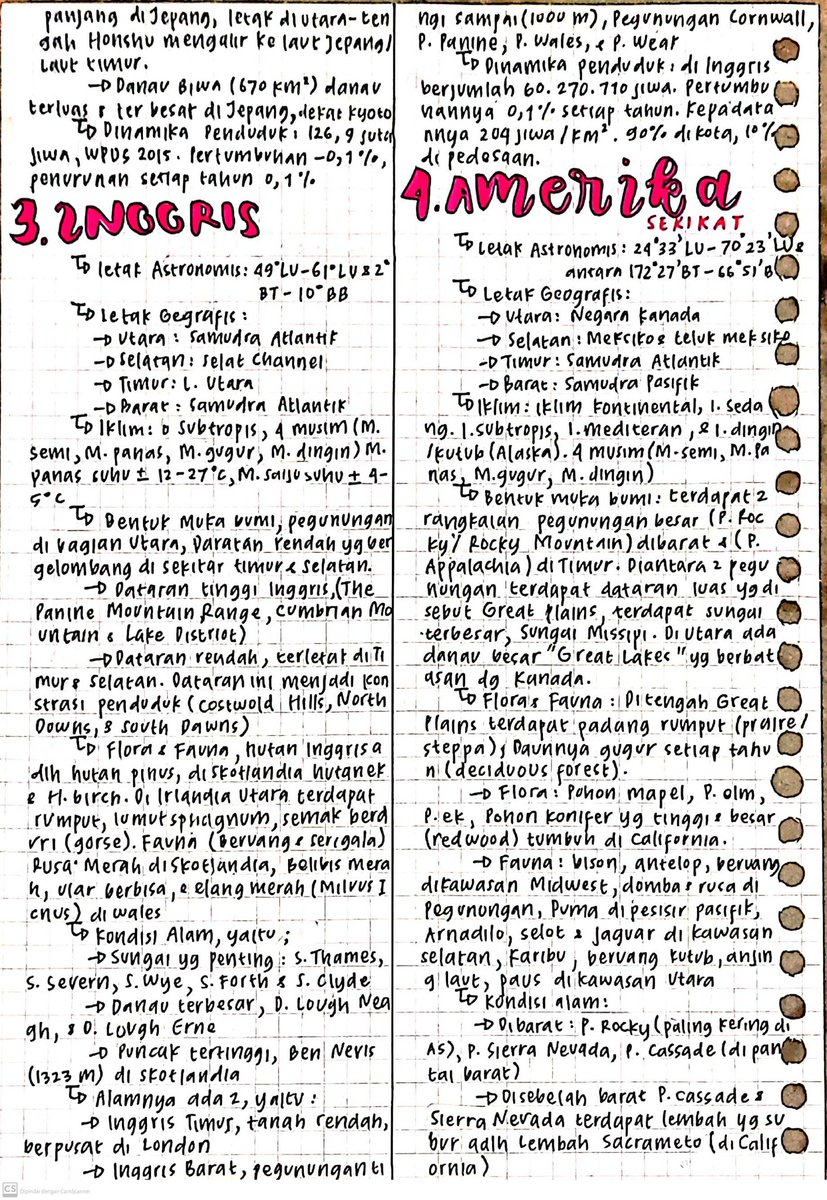 panjang di Jepang, letak di utara-ten
gah Honshu mengalir ke laut Jepang/
laut timur.
→ Danau Biwa (670 km²) danau
terluas & terbesar di Jepang, dekat kyoto
↳ Dinamika Penduduk: 126,9 juta
jiwa, WPDS 2015. Pertumbuhan -0,1%,
penurunan setiap tahun 0,1%
3. INGGRIS
↳ letak Astronomis: 49°LU-61°LU & 2°
BT-10°BB
↳ Letak Gegrafis:
→ Utara: Samudra Atlantik
→ Selatan: Selat Channel
→ Timur: L. Utara
→ Barat: Samudra Atlantik
↳ Iklim: Subtropis, 4 musim (M.
semi, M. panas, M. gugur, M. dingin) M.
panas suhu ± 12-27°C, M. salju suhu ± 4-
5°C
↳ Bentuk muka bumi, pegunungan
di bagian Utara, Daratan rendah yg ber
gelombang di sekitar timur & selatan.
→ Dataran tinggi Inggris, (The
Panine Mountain Range, Cumbrian Mo
untain & Lake District)
→ Dataran rendah, terletak di Ti
mur & Selatan. Dataran ini menjadi kon
strasi penduduk (Costwold Hills, North
Downs, & South Dawns)
↳ Flora & Fauna, hutan Inggris a
dlh hutan pinus, di Skotlandia hutan ek
& H. birch. Di Irlandia Utara terdapat
rumput, lumut sphagnum, semak berd
uri (gorse). Fauna (beruang & serigala)
Rusa Merah di Skotlandia, Belibis mera
h, ular berbisa, & elang merah (Milvus I
cnus) di wales
↳ Kondisi Alam, yaitu;
→ Sungai yg penting: S. Thames,
S. Severn, S. Wye, S. Forth & S. Clyde
→ Danau terbesar, D. Lough Nea
gh, & D. Lough Erne
→ Puncak tertinggi, Ben Nevis
(1323 m) di Skotlandia
↳ Alamnya ada 2, yaitu:
→ Inggris Timur, tanah rendah,
berpusat di London
→ Inggris Barat, pegunungan ti
CS Dipindai dengan CamScanner
ngi sampai (1000 m), Pegunungan Cornwall,
P. Panine, P. Wales, & P. Wear
↳ Dinamika penduduk: di Inggris
berjumlah 60.270.710 jiwa. Pertumbu
hannya 0,1% setiap tahun. Kepadata
nnya 204 jiwa/km². 90% di kota, 10%
di pedesaan.
4. Amerika
SERIKAT
↳ Letak Astronomis: 24°33'LU-70°23'LU &
antara 172°27'BT-66°51'B
↳ Letak Geografis:
→ Utara: Negara Kanada
→ Selatan: Meksiko & teluk meksiko
→ Timur: Samudra Atlantik
→ Barat: Samudra Pasifik
↳ Iklim: iklim kontinental, I. Seda
ng. I. Subtropis, I. mediteran, & I. dingin
/kutub (Alaska). 4 musim (M. semi, M. Pa
nas, M. gugur, M. dingin)
↳ Bentuk muka bumi: terdapat 2
rangkaian pegunungan besar (P. Roc
ky/ Rocky Mountain) di barat & (P.
Appalachia) di Timur. Diantara 2 pegu
nungan terdapat dataran luas yg di
sebut Great Plains, terdapat sungai
terbesar, Sungai Missipi. Di Utara ada
danau besar "Great Lakes" yg berbat
asan dg Kanada.
↳ Flora & Fauna: Di tengah Great
Plains terdapat padang rumput (praire/
steppa), Daunnya gugur setiap tahu
n (deciduous forest).
→ Flora: Pohon mapel, P. olm,
P. ek, Pohon konifer yg tinggi & besar
(redwood) tumbuh di California.
→ Fauna: bison, antelop, beruang
di kawasan Midwest, domba & rusa di
Pegunungan, Puma di pesisir pasifik,
Arnadilo, selot & Jaguar di kawasan
selatan, Karibu, beruang kutub, anjin
g laut, paus di kawasan utara
↳ Kondisi alam:
→ Dibarat: P. Rocky (paling kering di
AS), P. Sierra Nevada, P. Cassade (di pan
tai barat)
→ Disebelah barat P. Cassade &
Sierra Nevada terdapat lembah yg su
bur adlh Lembah Sacrameto (di Calif
ornia)